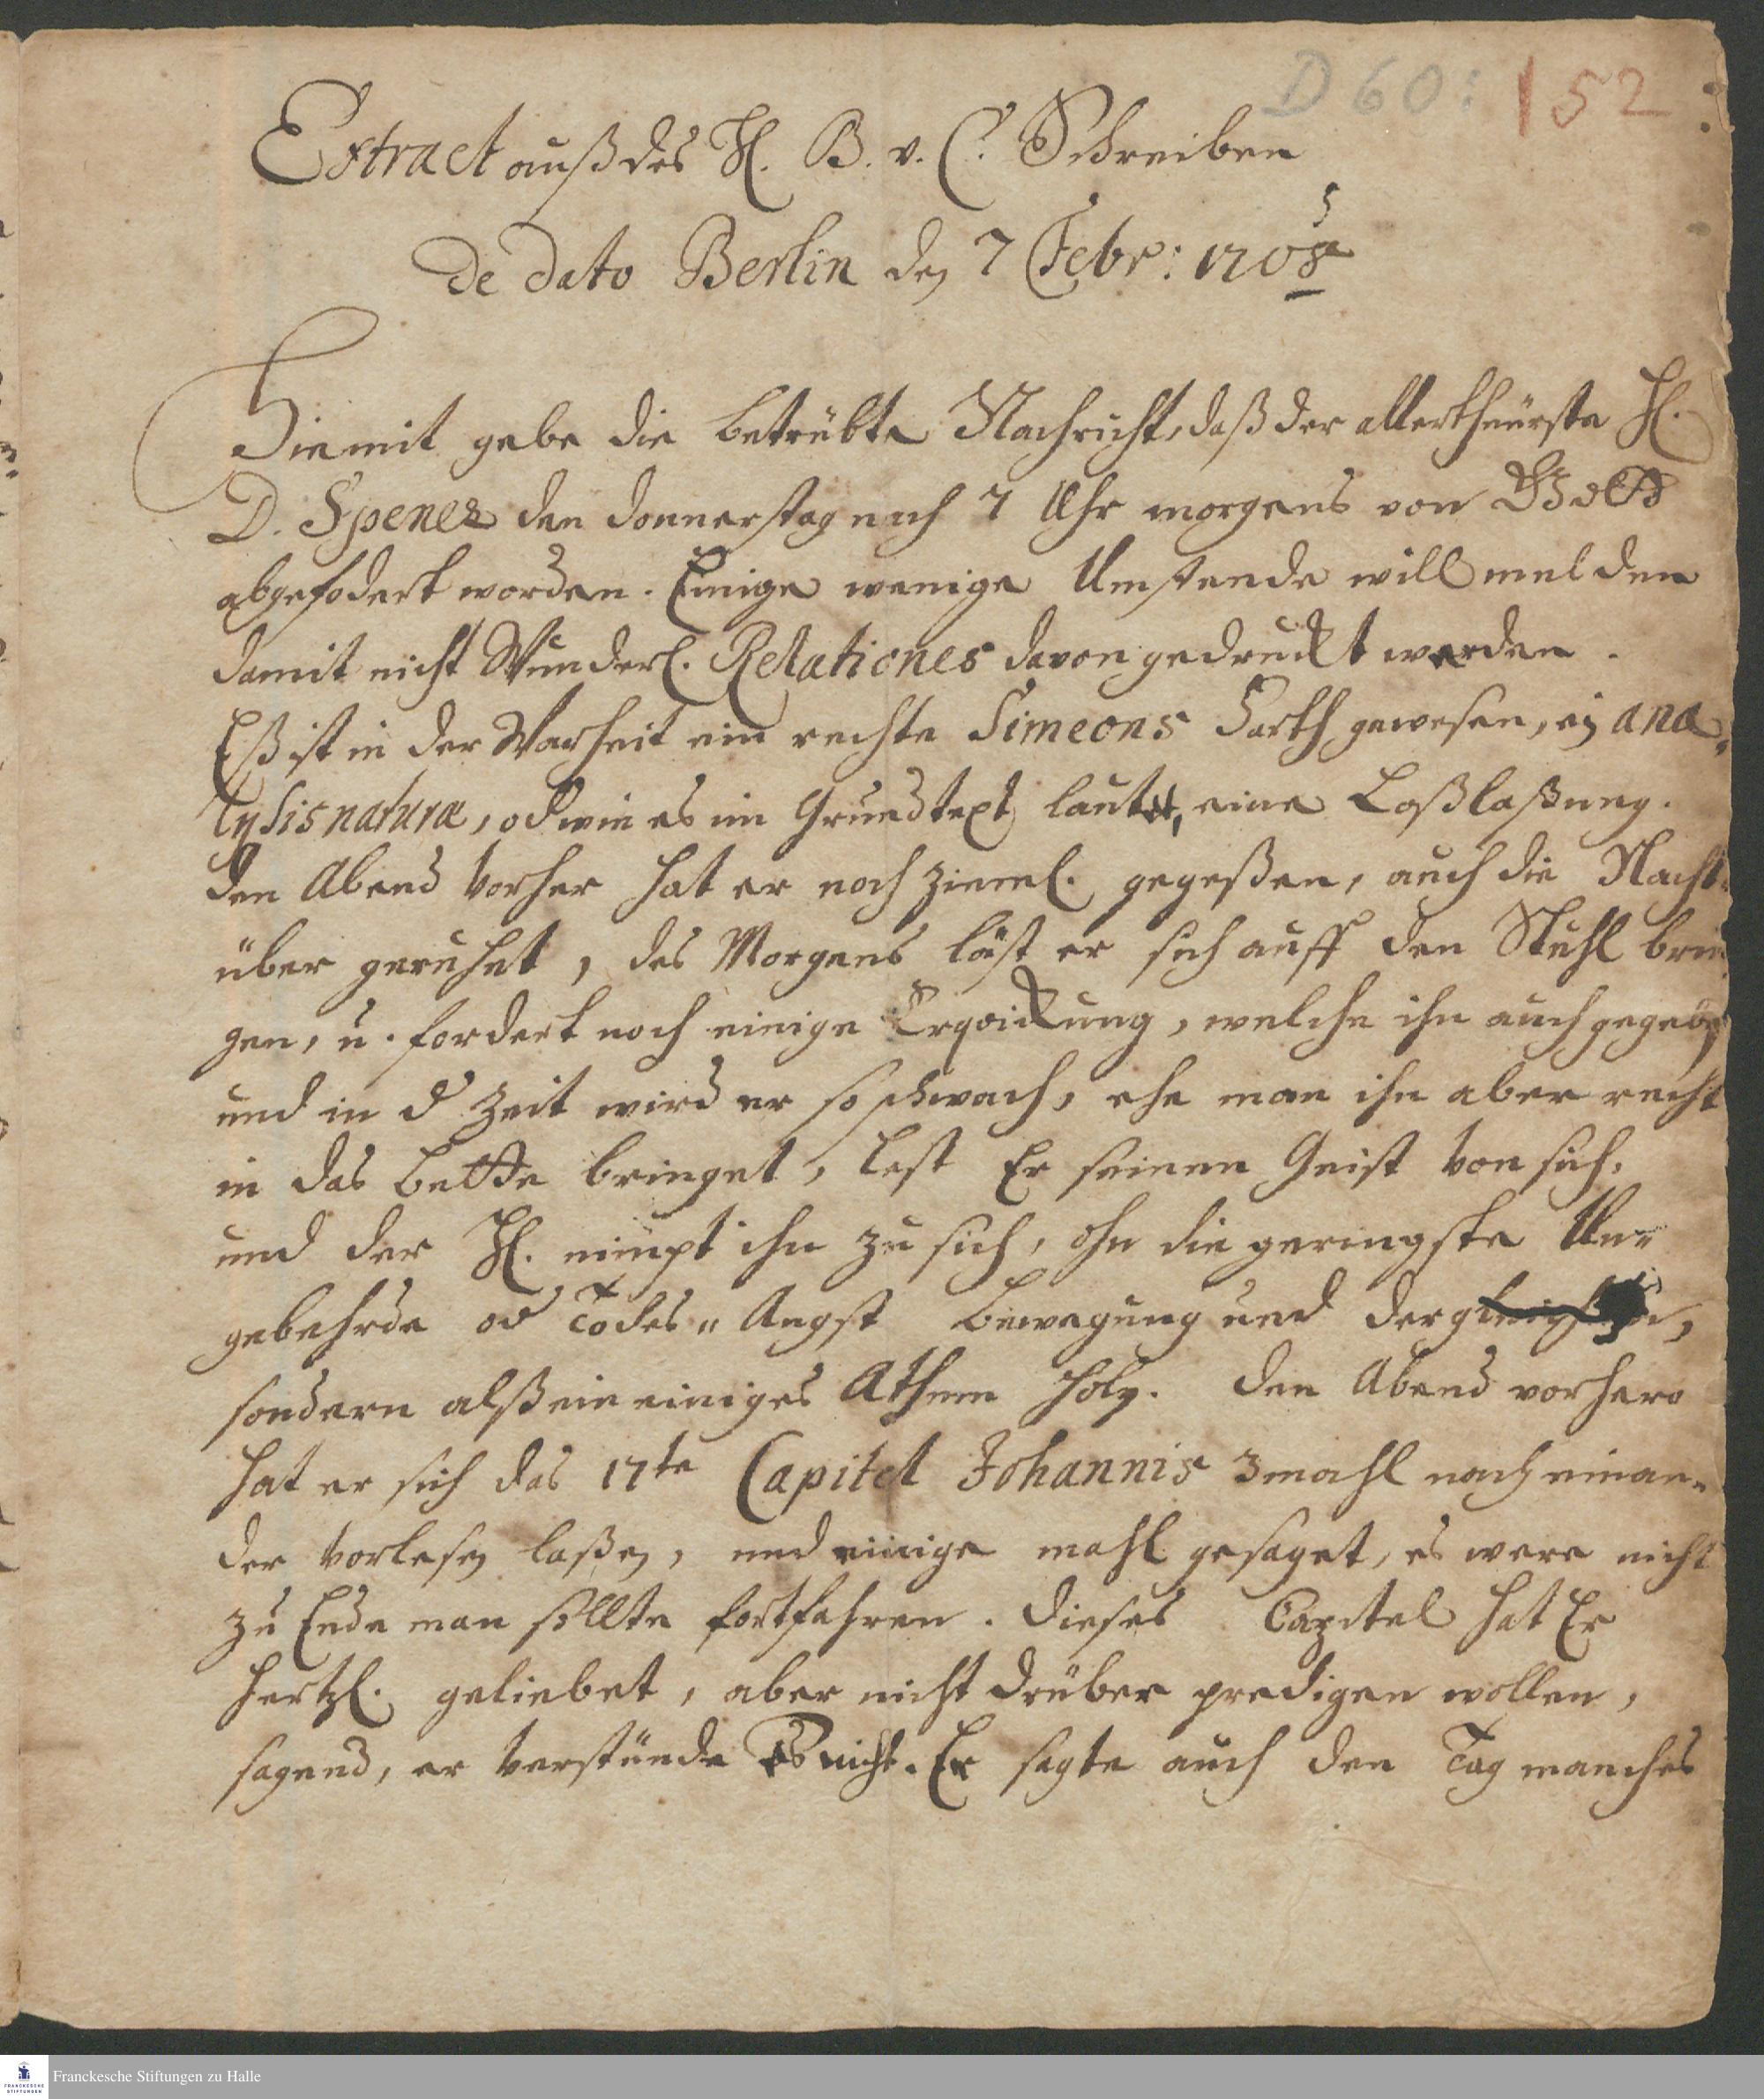 D 60: 152
Extract auß des H. B. v. C. Schreiben
de dato Berlin den 7 Febr: 1705
Hiemit gebe die betrübte Nachricht, daß der allertheürste H.
D. Spener den donnerstag nach 7 Uhr morgens von GOTT
abgefodert worden. Einige wenige Umstende will melden
damit nicht Wunderl. Relationes davon gedruckt werden.
Eß ist in der Warheit ein rechte Simeons Farth gewesen, ein ana„
lysis naturæ, od wie es im Grundtext lautet, eine Loßlaßung.
den Abend vorher hat er noch zieml. gegeßen, auch die Nacht
über geruhet, des Morgens läst er sich auff den Stuhl brin
gen, u. fordert noch einige Erqvickung, welche ihn auch gegeben
und in d Zeit wird er so schwach, ehe man ihn aber recht
in das bette bringet, lest Er seinen Geist von sich,
und der H. nimpt ihn zu sich, ohn die geringste Un„
gebehrde od Todes„ Angst bewegung und dergleichen,
sondern alß ein einiges Athem holen. den Abend vorhero
hat er sich das 17te Capitel Johannis 3mahl nach einan„
der vorlesen laßen, und einige mahl gesaget, es were nicht
zu Ende man sollte fortfahren. dieses Capitel hat Er
hertzl. geliebet, aber nicht drüber predigen wollen,
sagend, er verstünde es nicht. Er sagte auch den Tag manches
Franckesche Stiftungen zu Halle
FRANCKESCHE
STIFTUNGEN